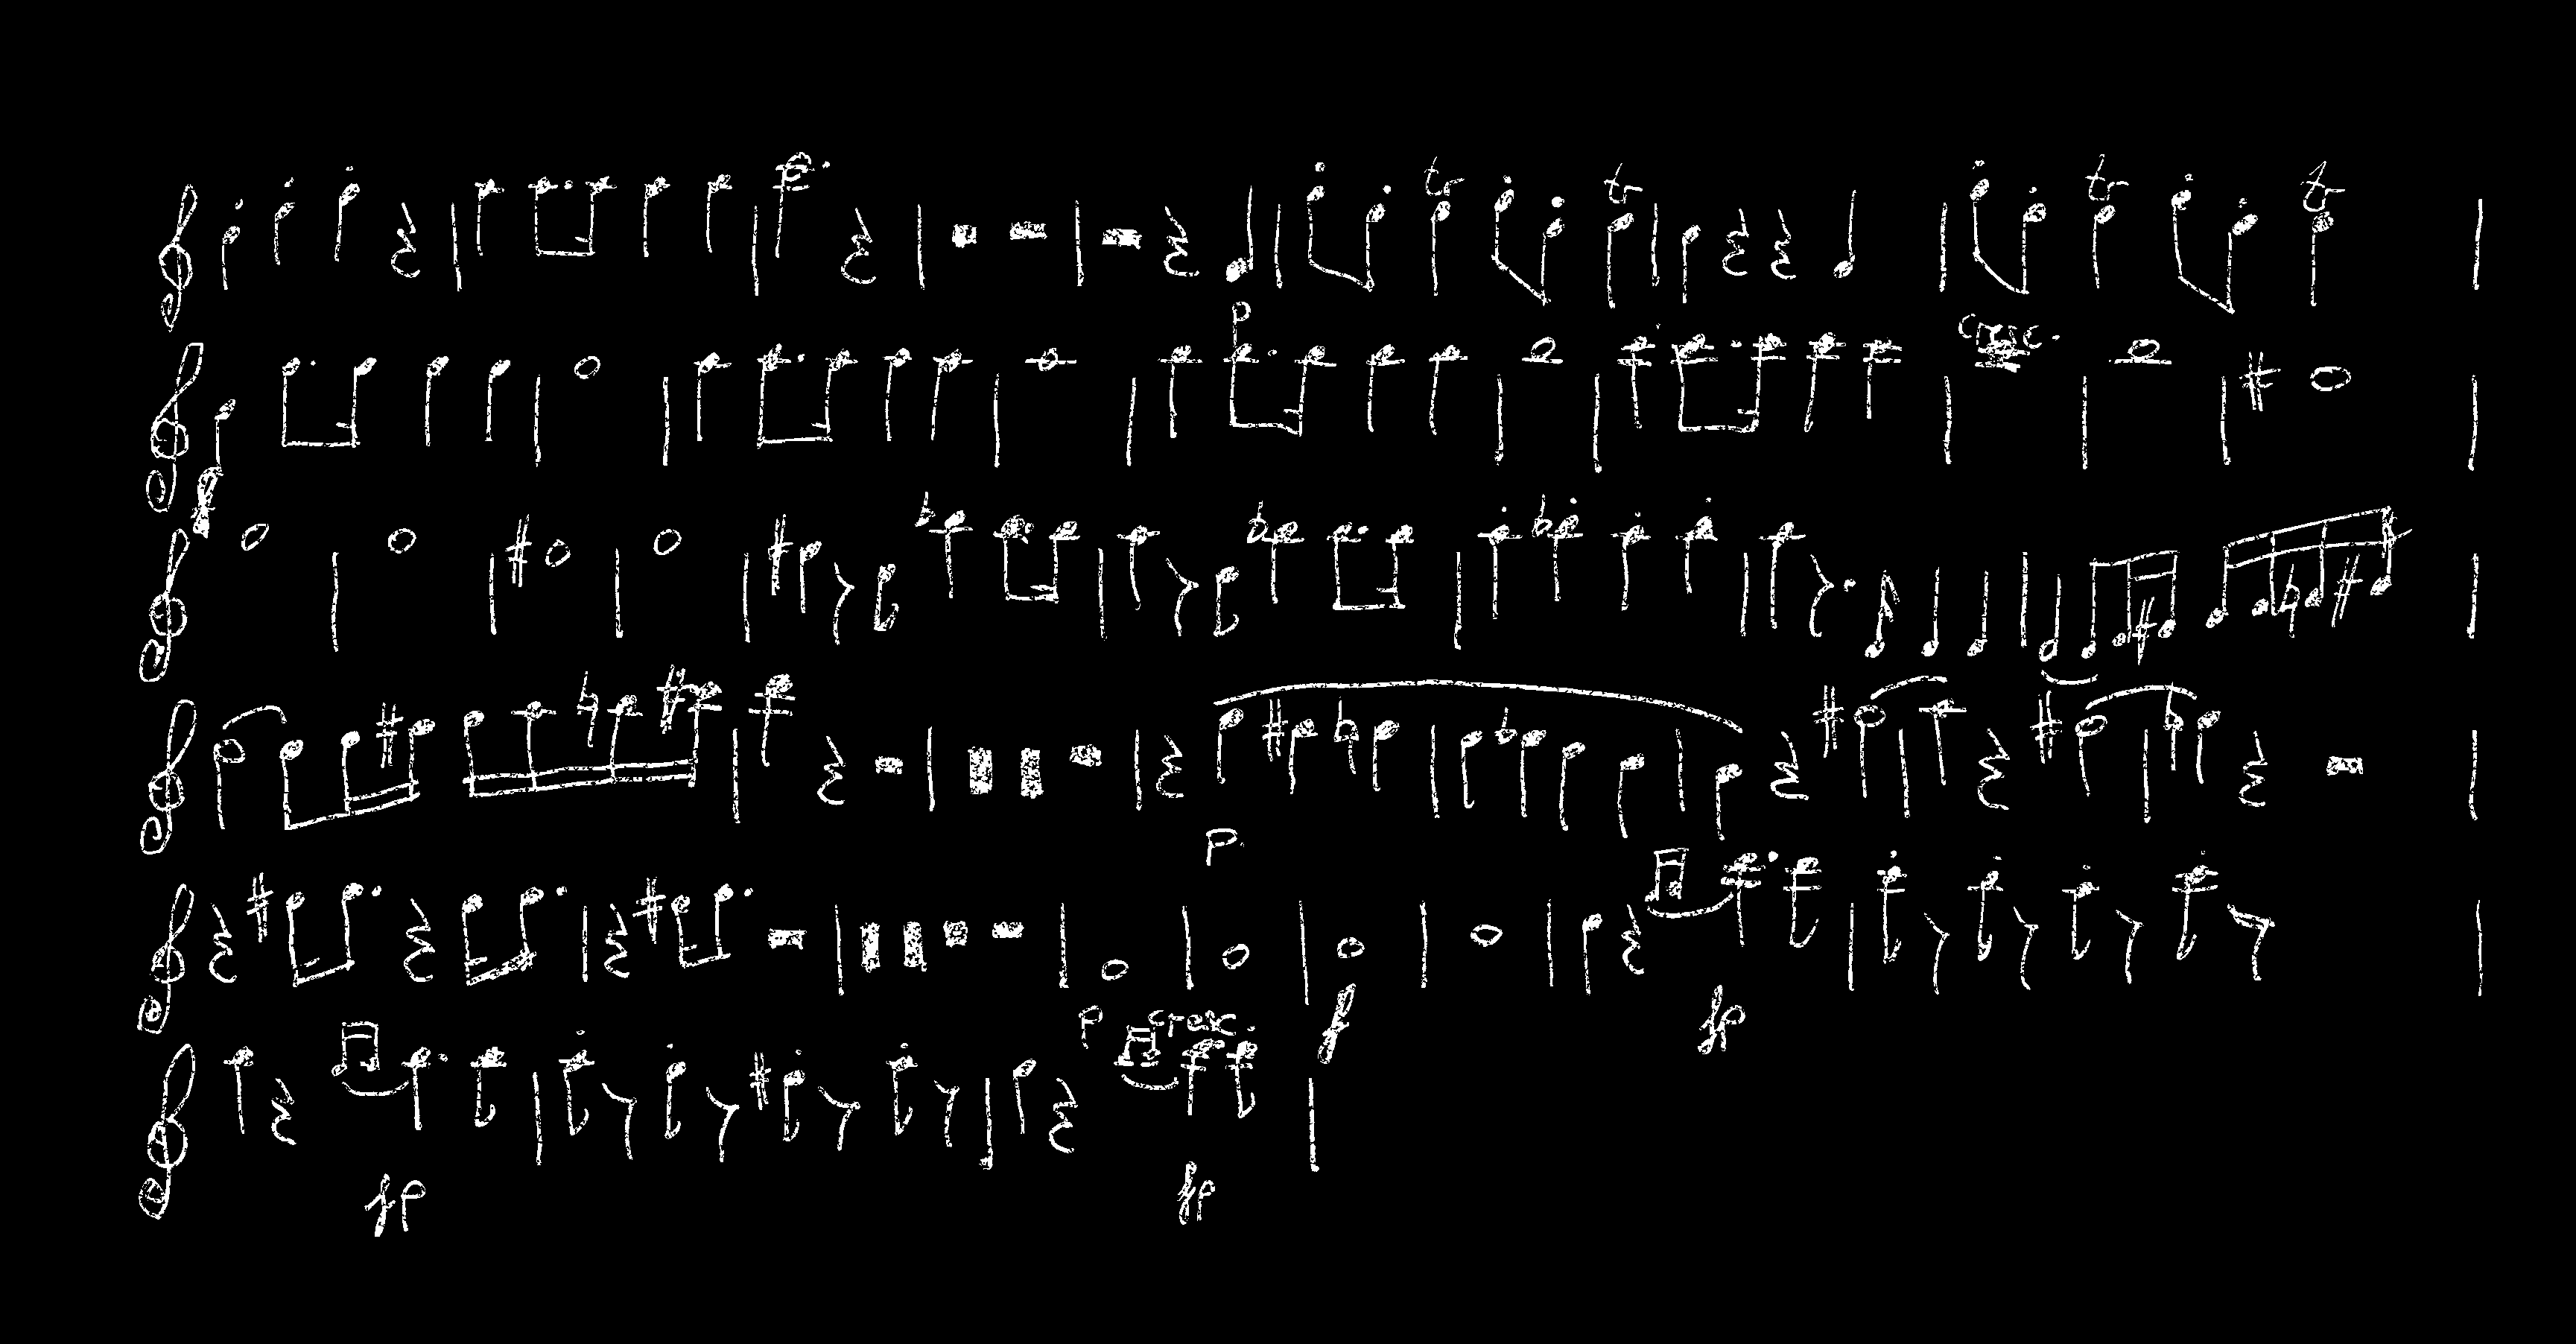 tr tr tr tr
p cresc.
f
p
p cresc. f fp
fp fp